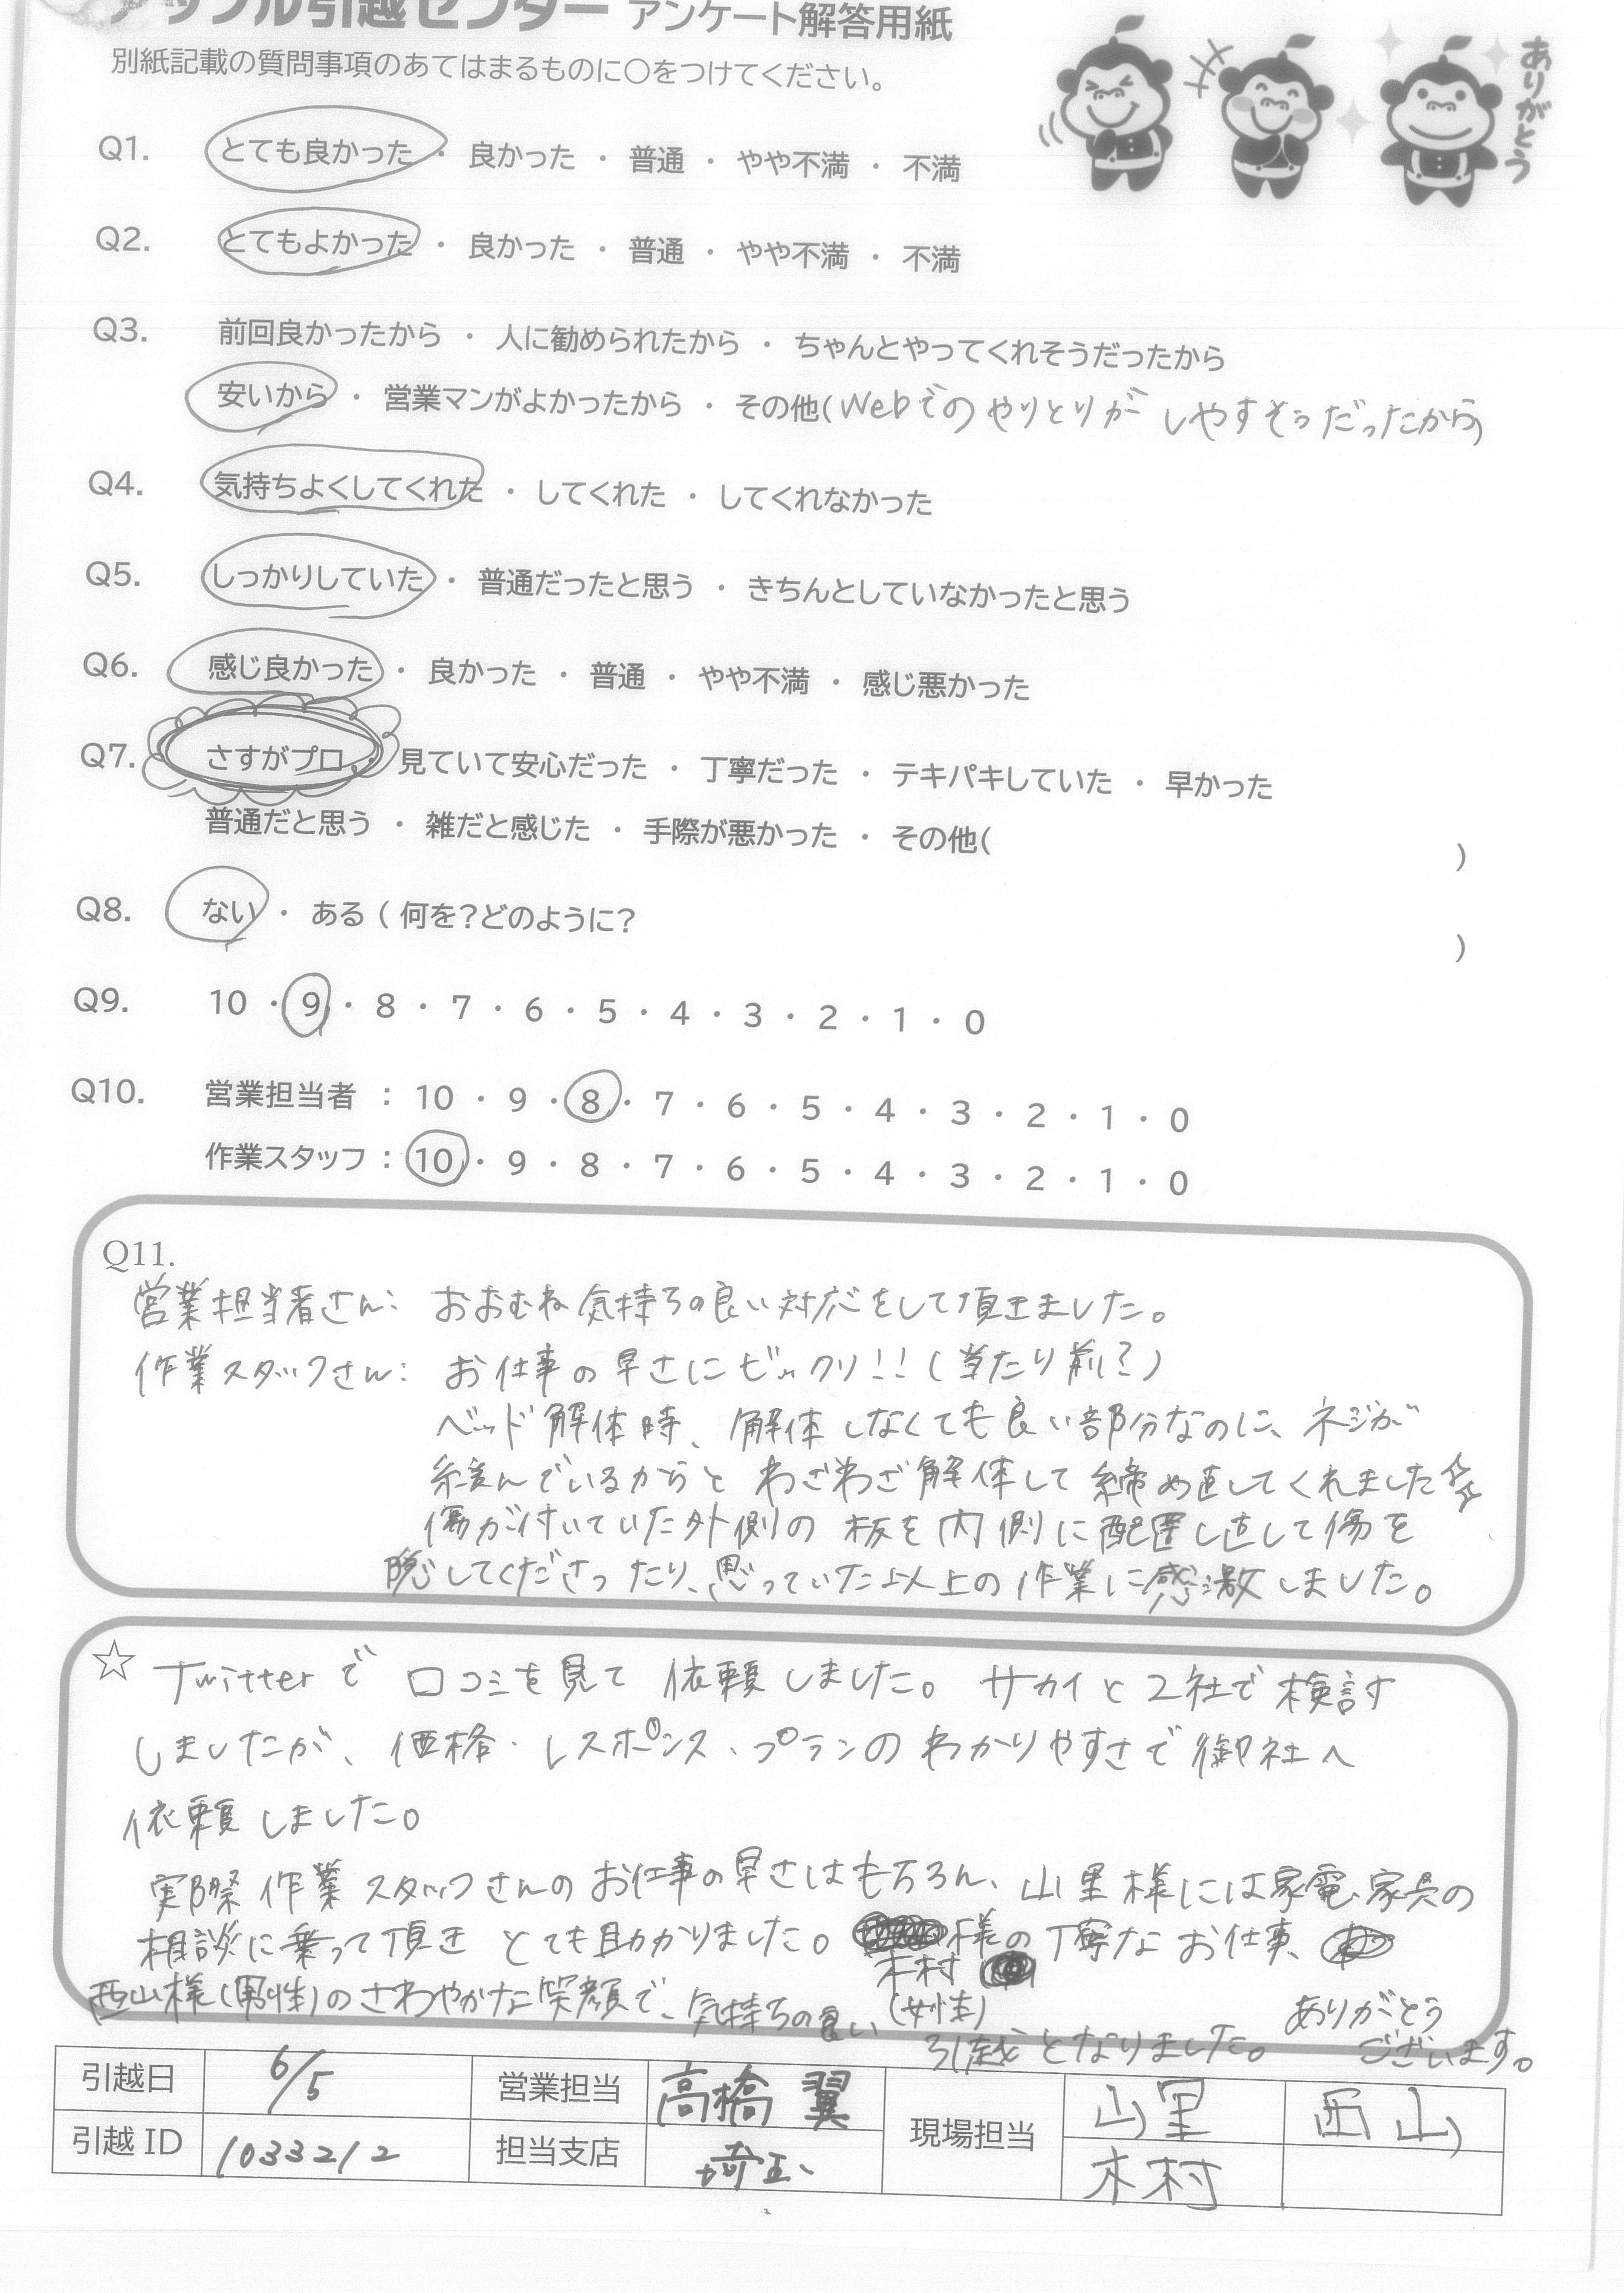 アップル引越センター アンケート解答用紙
別紙記載の質問事項のあてはまるものに○をつけてください。
ありがとう
Q1. とても良かった ・ 良かった ・ 普通 ・ やや不満 ・ 不満
Q2. とてもよかった ・ 良かった ・ 普通 ・ やや不満 ・ 不満
Q3. 前回良かったから ・ 人に勧められたから ・ ちゃんとやってくれそうだったから
安いから ・ 営業マンがよかったから ・ その他(Webでのやりとりが しやすそうだったから)
Q4. 気持ちよくしてくれた ・ してくれた ・ してくれなかった
Q5. しっかりしていた ・ 普通だったと思う ・ きちんとしていなかったと思う
Q6. 感じ良かった ・ 良かった ・ 普通 ・ やや不満 ・ 感じ悪かった
Q7. さすがプロ ・ 見ていて安心だった ・ 丁寧だった ・ テキパキしていた ・ 早かった
普通だと思う ・ 雑だと感じた ・ 手際が悪かった ・ その他( )
Q8. ない ・ ある ( 何を?どのように? )
Q9. 10 ・ 9 ・ 8 ・ 7 ・ 6 ・ 5 ・ 4 ・ 3 ・ 2 ・ 1 ・ 0
Q10. 営業担当者 : 10 ・ 9 ・ 8 ・ 7 ・ 6 ・ 5 ・ 4 ・ 3 ・ 2 ・ 1 ・ 0
作業スタッフ : 10 ・ 9 ・ 8 ・ 7 ・ 6 ・ 5 ・ 4 ・ 3 ・ 2 ・ 1 ・ 0
Q11.
営業担当者さん: おおむね気持ちの良い対応をして頂きました。
作業スタッフさん: お仕事の早さにビックリ!!(当たり前?)
ベッド解体時、解体しなくても良い部分なのに、ネジが
緩んでいるからと わざわざ解体して 締め直してくれました☆
傷が付いていた外側の 板を内側に配置し直して傷を
隠してくださったり、思っていた以上の作業に感激しました。
☆ Twitterで 口コミを見て 依頼しました。 サカイと2社で検討
しましたが、価格・レスポンス・プランのわかりやすさで御社へ
依頼しました。
実際作業スタッフさんのお仕事の早さはもちろん、山里様には家電、家具の
相談に乗って頂き とても助かりました。 様の丁寧なお仕事、
木村
(女性)
西山様(男性)のさわやかな笑顔で、気持ちの良い
引越となりました。 ありがとう
ございます。
引越日 6/5 営業担当 高橋 翼 現場担当 山里 西山
引越 ID 1033212 担当支店 埼玉 木村